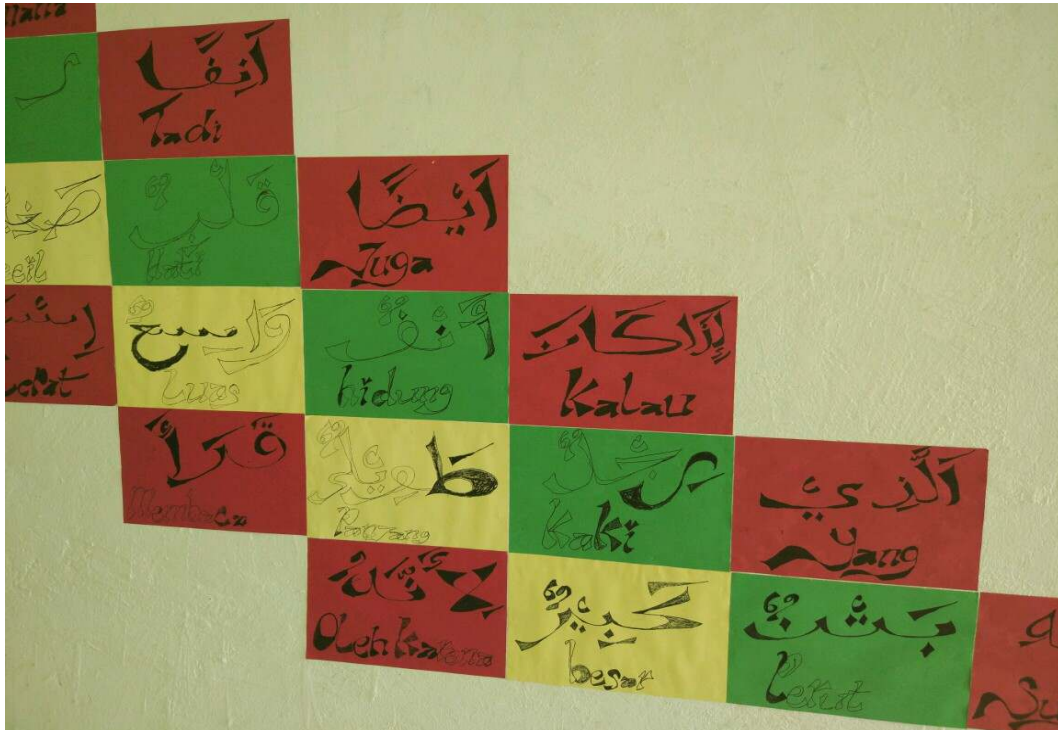 اَنِفًا
Tadi
قَلْبٌ
Hati
اَيْضًا
Juga
وَاسِعٌ
Luas
أَنْفٌ
hidung
إِذَاكَانَ
Kalau
قَرَأَ
Membaca
طَوِيْلٌ
Panjang
رِجْلٌ
Kaki
اَلَّذِيْ
Yang
لِأَنَّهُ
Oleh karena
كَبِيْرٌ
besar
Perut